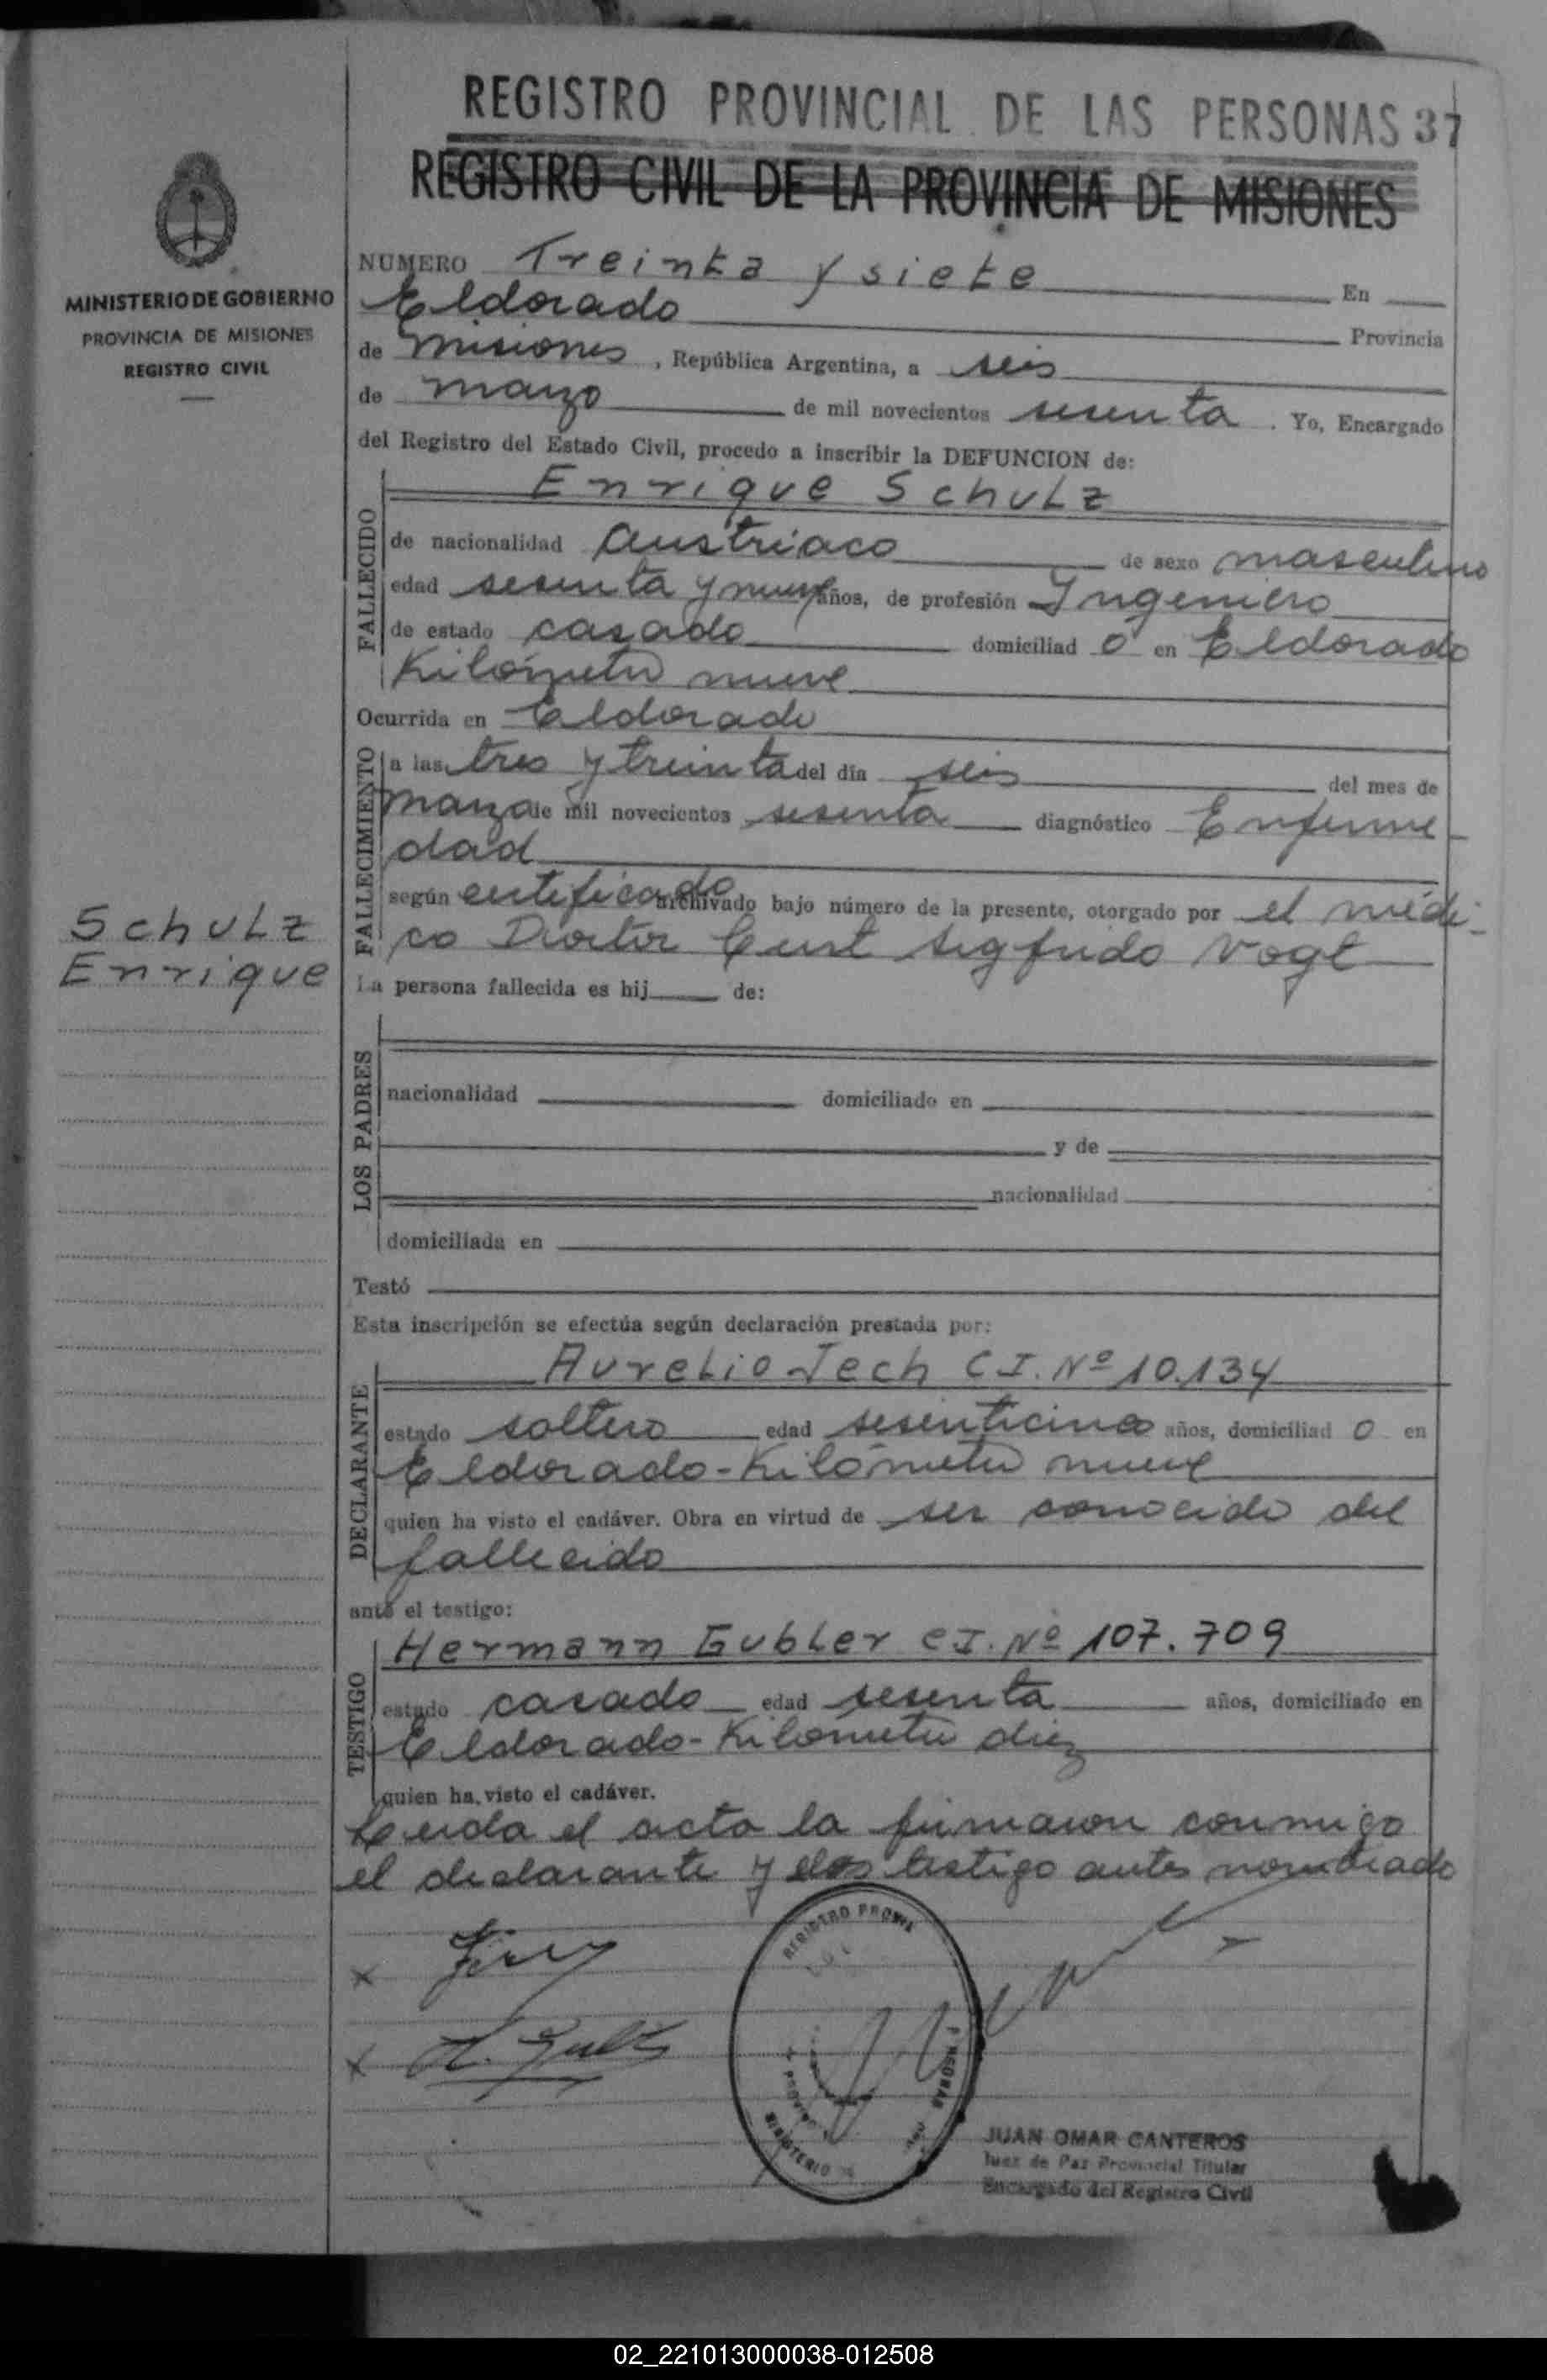 REGISTRO PROVINCIAL DE LAS PERSONAS 37
REGISTRO CIVIL DE LA PROVINCIA DE MISIONES
MINISTERIO DE GOBIERNO
PROVINCIA DE MISIONES
REGISTRO CIVIL
NUMERO Treinta y siete En
Eldorado Provincia
de Misiones, República Argentina, a seis
de marzo de mil novecientos sesenta. Yo, Encargado
del Registro del Estado Civil, procedo a inscribir la DEFUNCION de:
FALLECIDO
Enrique Schulz
de nacionalidad Austriaco de sexo masculino
edad sesenta y nueve años, de profesión Ingeniero
de estado casado domiciliad o en Eldorado
Kilómetro nueve
Ocurrida en Eldorado
FALLECIMIENTO
a las tres y treinta del día seis del mes de
marzo de mil novecientos sesenta diagnóstico Enferme-
dad
Schulz
Enrique
según certificado archivado bajo número de la presente, otorgado por el médi-
co Doctor Curt Sigfrido Vogt
La persona fallecida es hij de:
LOS PADRES
nacionalidad domiciliado en
y de
nacionalidad
domiciliada en
Testó
Esta inscripción se efectúa según declaración prestada por:
DECLARANTE
Aurelio Jech C I. Nº 10.134
estado soltero edad sesenticinco años, domiciliad o en
Eldorado-Kilómetro nueve
quien ha visto el cadáver. Obra en virtud de ser conocido del
fallecido
ante el testigo:
TESTIGO
Hermann Gubler C I. Nº 107.709
estado casado edad sesenta años, domiciliado en
Eldorado-Kilometro diez
quien ha visto el cadáver.
Leida el acta la firmaron conmigo
el declarante y el testigo antes nombrado
x
x
REGISTRO PROVIN
MINISTERIO
JUAN OMAR CANTEROS
Juez de Paz Provincial Titular
Encargado del Registro Civil
02_221013000038-012508